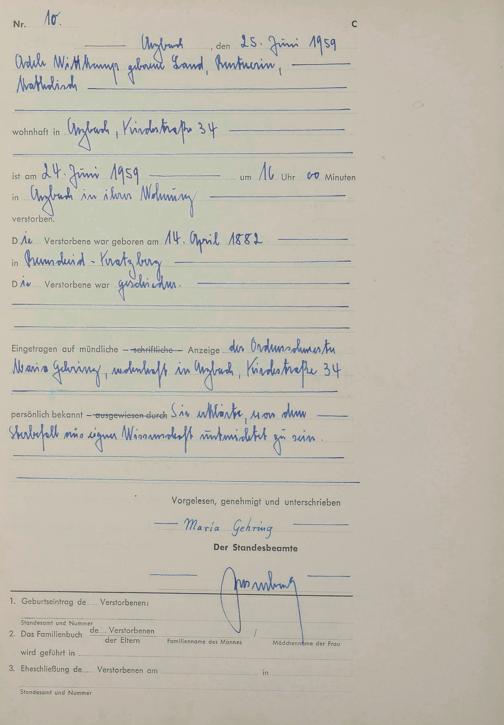 Nr. 10. C
Arzbach, den 25. Juni 1959
Adele Wittkamp geborene Land, Rentnerin,
katholisch
wohnhaft in Arzbach, Kirchstraße 34
ist am 24. Juni 1959 um 16 Uhr 00 Minuten
in Arzbach in ihrer Wohnung
verstorben.
Die Verstorbene war geboren am 14. April 1882
in Remscheid - Kratzberg
Die Verstorbene war geschieden.
Eingetragen auf mündliche schriftliche Anzeige der Ordensschwester
Maria Gehring, wohnhaft in Arzbach, Kirchstraße 34
persönlich bekannt ausgewiesen durch Sie erklärte, von dem
Sterbefall aus eigner Wissenschaft unterrichtet zu sein.
Vorgelesen, genehmigt und unterschrieben
Maria Gehring
Der Standesbeamte
1. Geburtseintrag de Verstorbenen:
Standesamt und Nummer
2. Das Familienbuch de Verstorbenen / der Eltern
Familienname des Mannes Mädchenname der Frau
wird geführt in
3. Eheschließung de Verstorbenen am in
Standesamt und Nummer